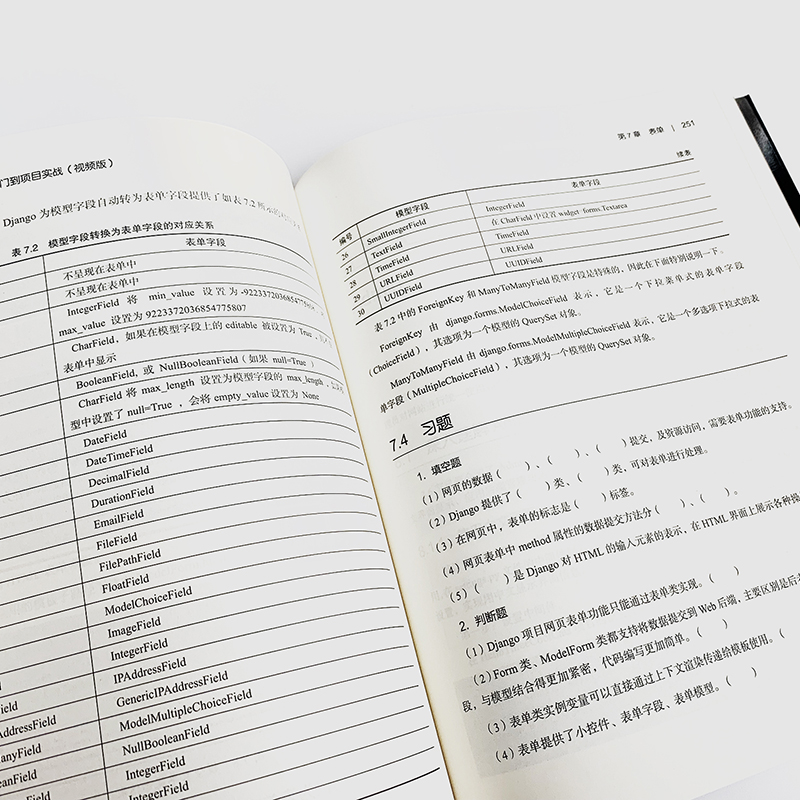 门到项目实战（视频版）
Django 为模型字段自动转为表单字段提供了如表 7.2 所示的
表 7.2 模型字段转换为表单字段的对应关系
表单字段
不呈现在表单中
不呈现在表单中
IntegerField 将 min_value 设置为-9223372036854775
max_value 设置为 9223372036854775807
CharField，如果在模型字段上的 editable 被设置为 True，
表单中显示
BooleanField, 或 NullBooleanField（如果 null=True）
CharField 将 max_length 设置为模型字段的 max_length，
型中设置了 null=True ，会将 empty_value 设置为 None
DateField
DateTimeField
DecimalField
DurationField
EmailField
FileField
FilePathField
FloatField
ModelChoiceField
ImageField
IntegerField
IPAddressField
GenericIPAddressField
ModelMultipleChoiceField
NullBooleanField
IntegerField
IntegerField
ield
AddressField
anyField
eanField
Field
第 7 章 表单 | 251
续表
编号 模型字段 表单字段
26 SmallIntegerField IntegerField
27 TextField 在 CharField 中设置 widget forms.Textarea
28 TimeField TimeField
29 URLField URLField
30 UUIDField UUIDField
表 7.2 中的 ForeignKey 和 ManyToManyField 模型字段是特殊的，因此在下面特别说明一下。
ForeignKey 由 django.forms.ModelChoiceField 表示，它是一个下拉菜单式的表单字段
（ChoiceField），其选项为一个模型的 QuerySet 对象。
ManyToManyField 由 django.forms.ModelMultipleChoiceField 表示，它是一个多选项下拉式的表
单字段（MultipleChoiceField），其选项为一个模型的 QuerySet 对象。
7.4 习题
1. 填空题
（1）网页的数据（ ）、（ ）、（ ）提交，及资源访问，需要表单功能的支持。
（2）Django 提供了（ ）类、（ ）类，可对表单进行处理。
（3）在网页中，表单的标志是（ ）标签。
（4）网页表单中 method 属性的数据提交方法分（ ）、（ ）。
（5）（ ）是 Django 对 HTML 的输入元素的表示，在 HTML 界面上展示各种操
2. 判断题
（1）Django 项目网页表单功能只能通过表单类实现。（ ）
（2）Form 类、ModelForm 类都支持将数据提交到 Web 后端，主要区别是后
段，与模型结合得更加紧密，代码编写更加简单。（ ）
（3）表单类实例变量可以直接通过上下文渲染传递给模板使用。（
（4）表单提供了小控件、表单字段、表单模型。（ ）